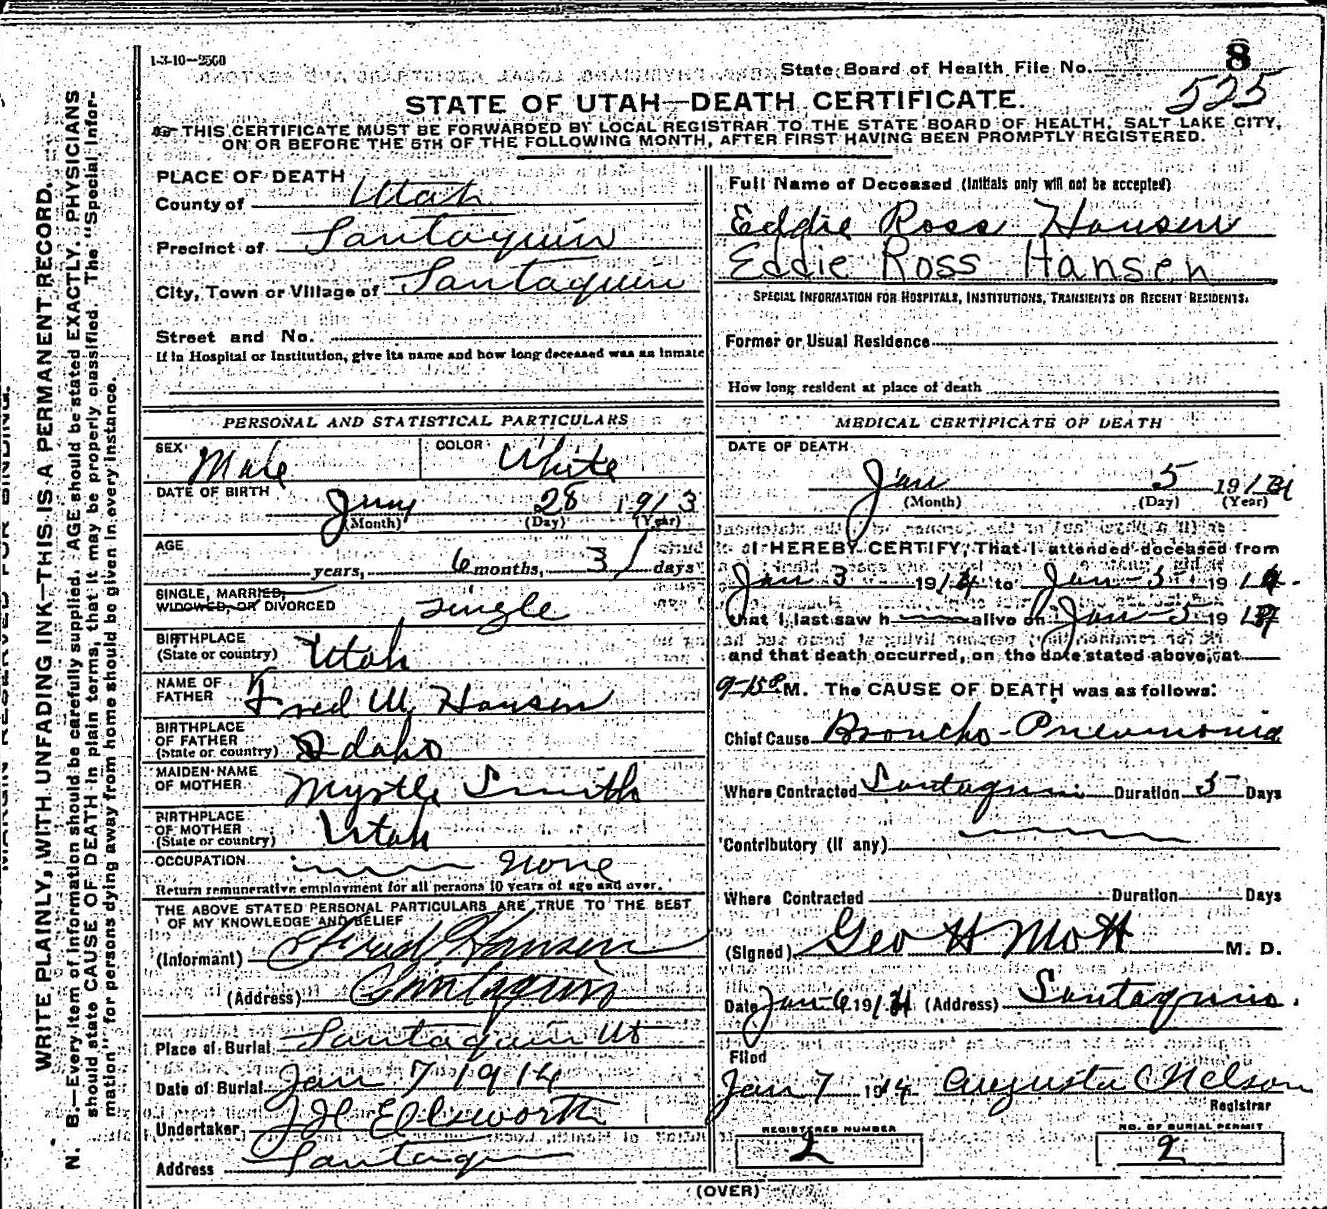 1-3-10—2500
State Board of Health File No. 8
525
STATE OF UTAH—DEATH CERTIFICATE.
THIS CERTIFICATE MUST BE FORWARDED BY LOCAL REGISTRAR TO THE STATE BOARD OF HEALTH, SALT LAKE CITY,
ON OR BEFORE THE 5TH OF THE FOLLOWING MONTH, AFTER FIRST HAVING BEEN PROMPTLY REGISTERED.
WRITE PLAINLY, WITH UNFADING INK—THIS IS A PERMANENT RECORD.
N. B.—Every item of information should be carefully supplied. AGE should be stated EXACTLY. PHYSICIANS
should state CAUSE OF DEATH in plain terms, that it may be properly classified. The "Special Infor-
mation" for persons dying away from home should be given in every instance.
PLACE OF DEATH
County of Utah
Precinct of Santaquin
City, Town or Village of Santaquin
Street and No.
If in Hospital or Institution, give its name and how long deceased was an inmate
PERSONAL AND STATISTICAL PARTICULARS
SEX Male COLOR White
DATE OF BIRTH
28 1913
(Month) (Day) (Year)
AGE
years, 6 months, days
SINGLE, MARRIED,
WIDOWED, OR DIVORCED Single
BIRTHPLACE
(State or country) Utah
NAME OF
FATHER Fred W Hansen
BIRTHPLACE
OF FATHER
(State or country) Idaho
MAIDEN NAME
OF MOTHER Myrtle Smith
BIRTHPLACE
OF MOTHER
(State or country) Utah
OCCUPATION None
Return remunerative employment for all persons 10 years of age and over.
THE ABOVE STATED PERSONAL PARTICULARS ARE TRUE TO THE BEST
OF MY KNOWLEDGE AND BELIEF
(Informant) Fred Hansen
(Address) Santaquin
Place of Burial Santaquin Ut
Date of Burial Jan 7 1914
Undertaker Ellsworth
Address Santaquin
Full Name of Deceased (Initials only will not be accepted)
Eddie Ross Hansen
Eddie Ross Hansen
SPECIAL INFORMATION FOR HOSPITALS, INSTITUTIONS, TRANSIENTS OR RECENT RESIDENTS.
Former or Usual Residence
How long resident at place of death
MEDICAL CERTIFICATE OF DEATH
DATE OF DEATH
Jan 5 1914
(Month) (Day) (Year)
I HEREBY CERTIFY, That I attended deceased from
Jan 3 1914 to Jan 5 1914
that I last saw h alive on Jan 5 1914
and that death occurred, on the date stated above, at
9-15 P M. The CAUSE OF DEATH was as follows:
Chief Cause Broncho-Pneumonia
Where Contracted Santaquin Duration 5 Days
Contributory (if any)
Where Contracted Duration Days
(Signed) Geo H Mott M. D.
Date Jan 6 1914 (Address) Santaquin.
Filed
Jan 7 1914 Augusta C Nelson
Registrar
REGISTERED NUMBER
2
NO. OF BURIAL PERMIT
2
(OVER)